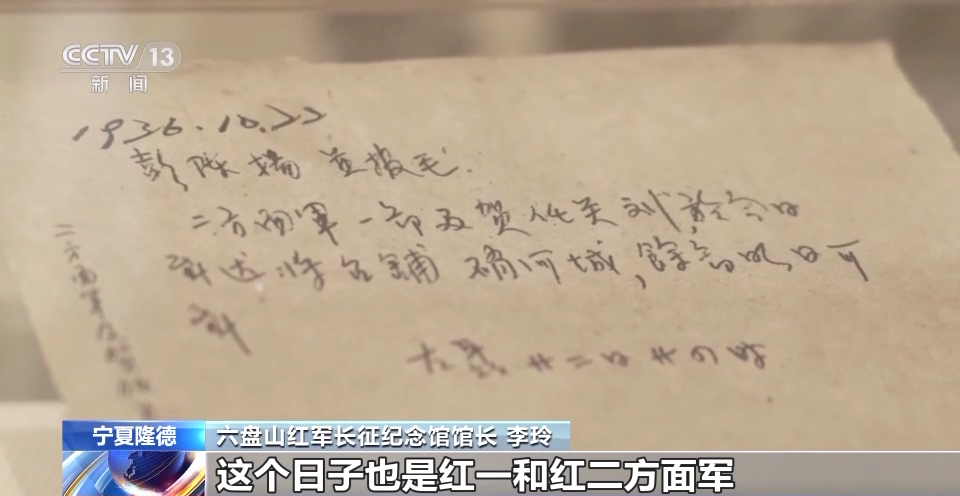 CCTV 13
新闻
1936.10.22
彭陈楊並报毛.
二方面軍一部及贺任关刘於今日
到达将台鋪硝河城,餘部明日可
到
左聂廿二日廿四时
二方面軍
宁夏隆德
六盘山红军长征纪念馆馆长 李玲
这个日子也是红一和红二方面军